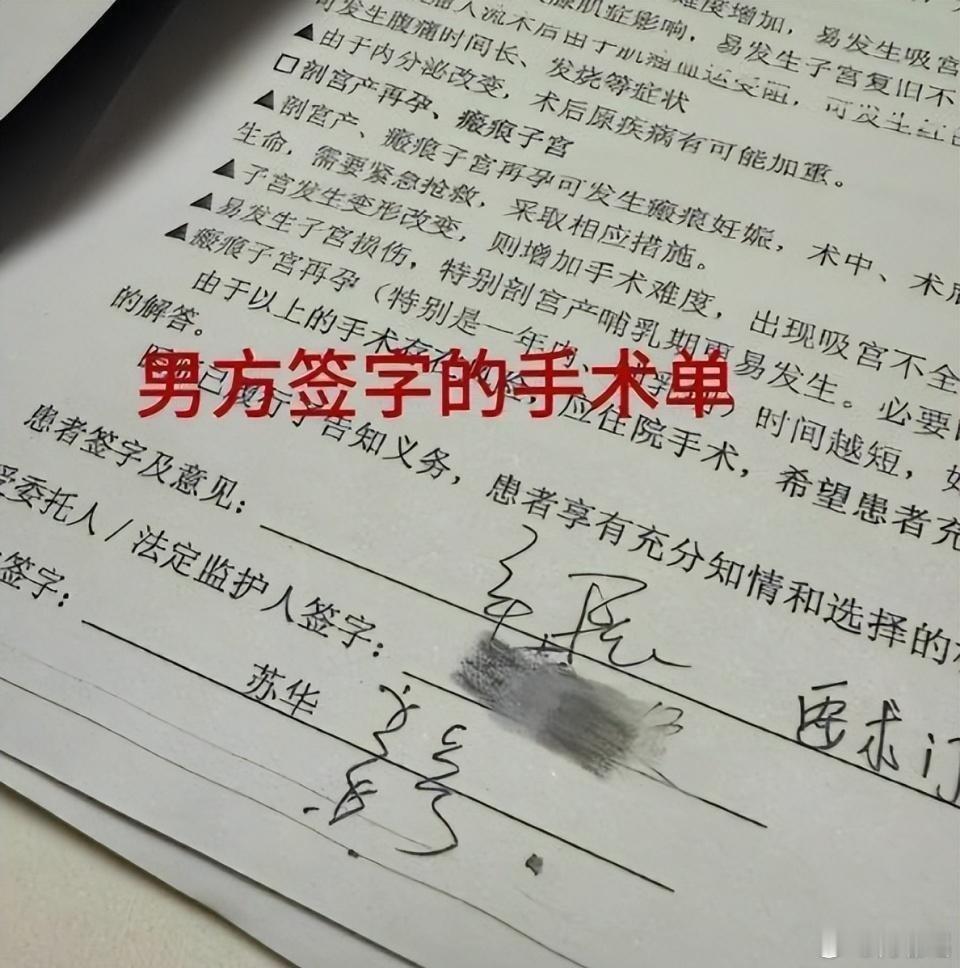 难度增加，易发生吸宫
腺肌症影响，易发生子宫复旧不
人流术后由于肌瘤血运受阻，可发生
可发生腹痛时间长、发烧等症状
▲由于内分泌改变，术后原疾病有可能加重。
□剖宫产再孕、瘢痕子宫
▲剖宫产、瘢痕子宫再孕可发生瘢痕妊娠，术中、术后
生命，需要紧急抢救，采取相应措施。
▲子宫发生变形改变，则增加手术难度，出现吸宫不全
▲易发生子宫损伤，特别剖宫产哺乳期更易发生。必要
▲瘢痕子宫再孕（特别是一年内、 ）时间越短，
由于以上的手术存在风险，应住院手术，希望患者充
的解答。
男方签字的手术单
医 已履行了告知义务，患者享有充分知情和选择的
患者签字及意见：
要求
受委托人/法定监护人签字：
签字：
苏华